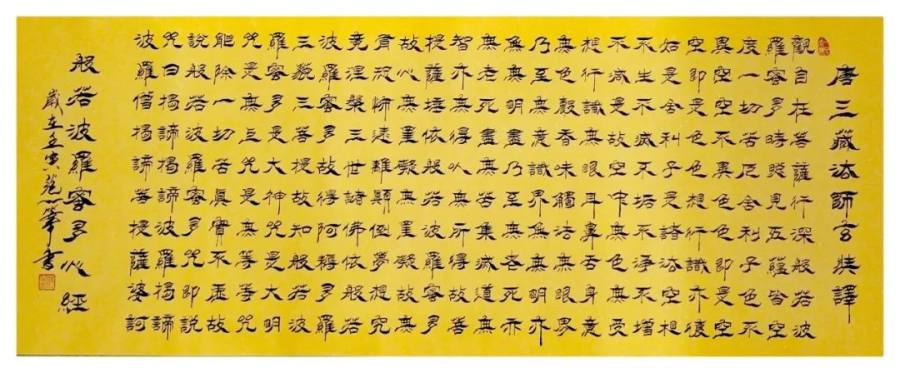 唐三藏法師玄奘譯
觀自在菩薩行深般若波
羅蜜多時照見五蘊皆空
度一切苦厄舍利子色不
異空空不異色色即是空
空即是色受想行識亦復
如是舍利子是諸法空相
不生不滅不垢不淨不增
不減是故空中無色無受
想行識無眼耳鼻舌身意
無色聲香味觸法無眼界
乃至無意識界無無明亦
無無明盡乃至無老死亦
無老死盡無苦集滅道無
智亦無得以無所得故菩
提薩埵依般若波羅蜜多
故心無罣礙無罣礙故無
有恐怖遠離顛倒夢想究
竟涅槃三世諸佛依般若
波羅蜜多故得阿耨多羅
三藐三菩提故知般若波
羅蜜多是大神咒是大明
咒是無上咒是無等等咒
能除一切苦真實不虛故
說般若波羅蜜多咒即說
咒曰揭諦揭諦波羅揭諦
波羅僧揭諦菩提薩婆訶
般若波羅蜜多心經
歲在壬寅書